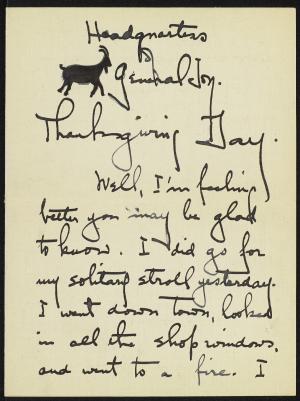 Headquarters
of
General Joy.
Thanksgiving Day.
Well, I'm feeling
better you may be glad
to know. I did go for
my solitary stroll yesterday.
I went down town, looked
in all the shop windows,
and went to a fire. I